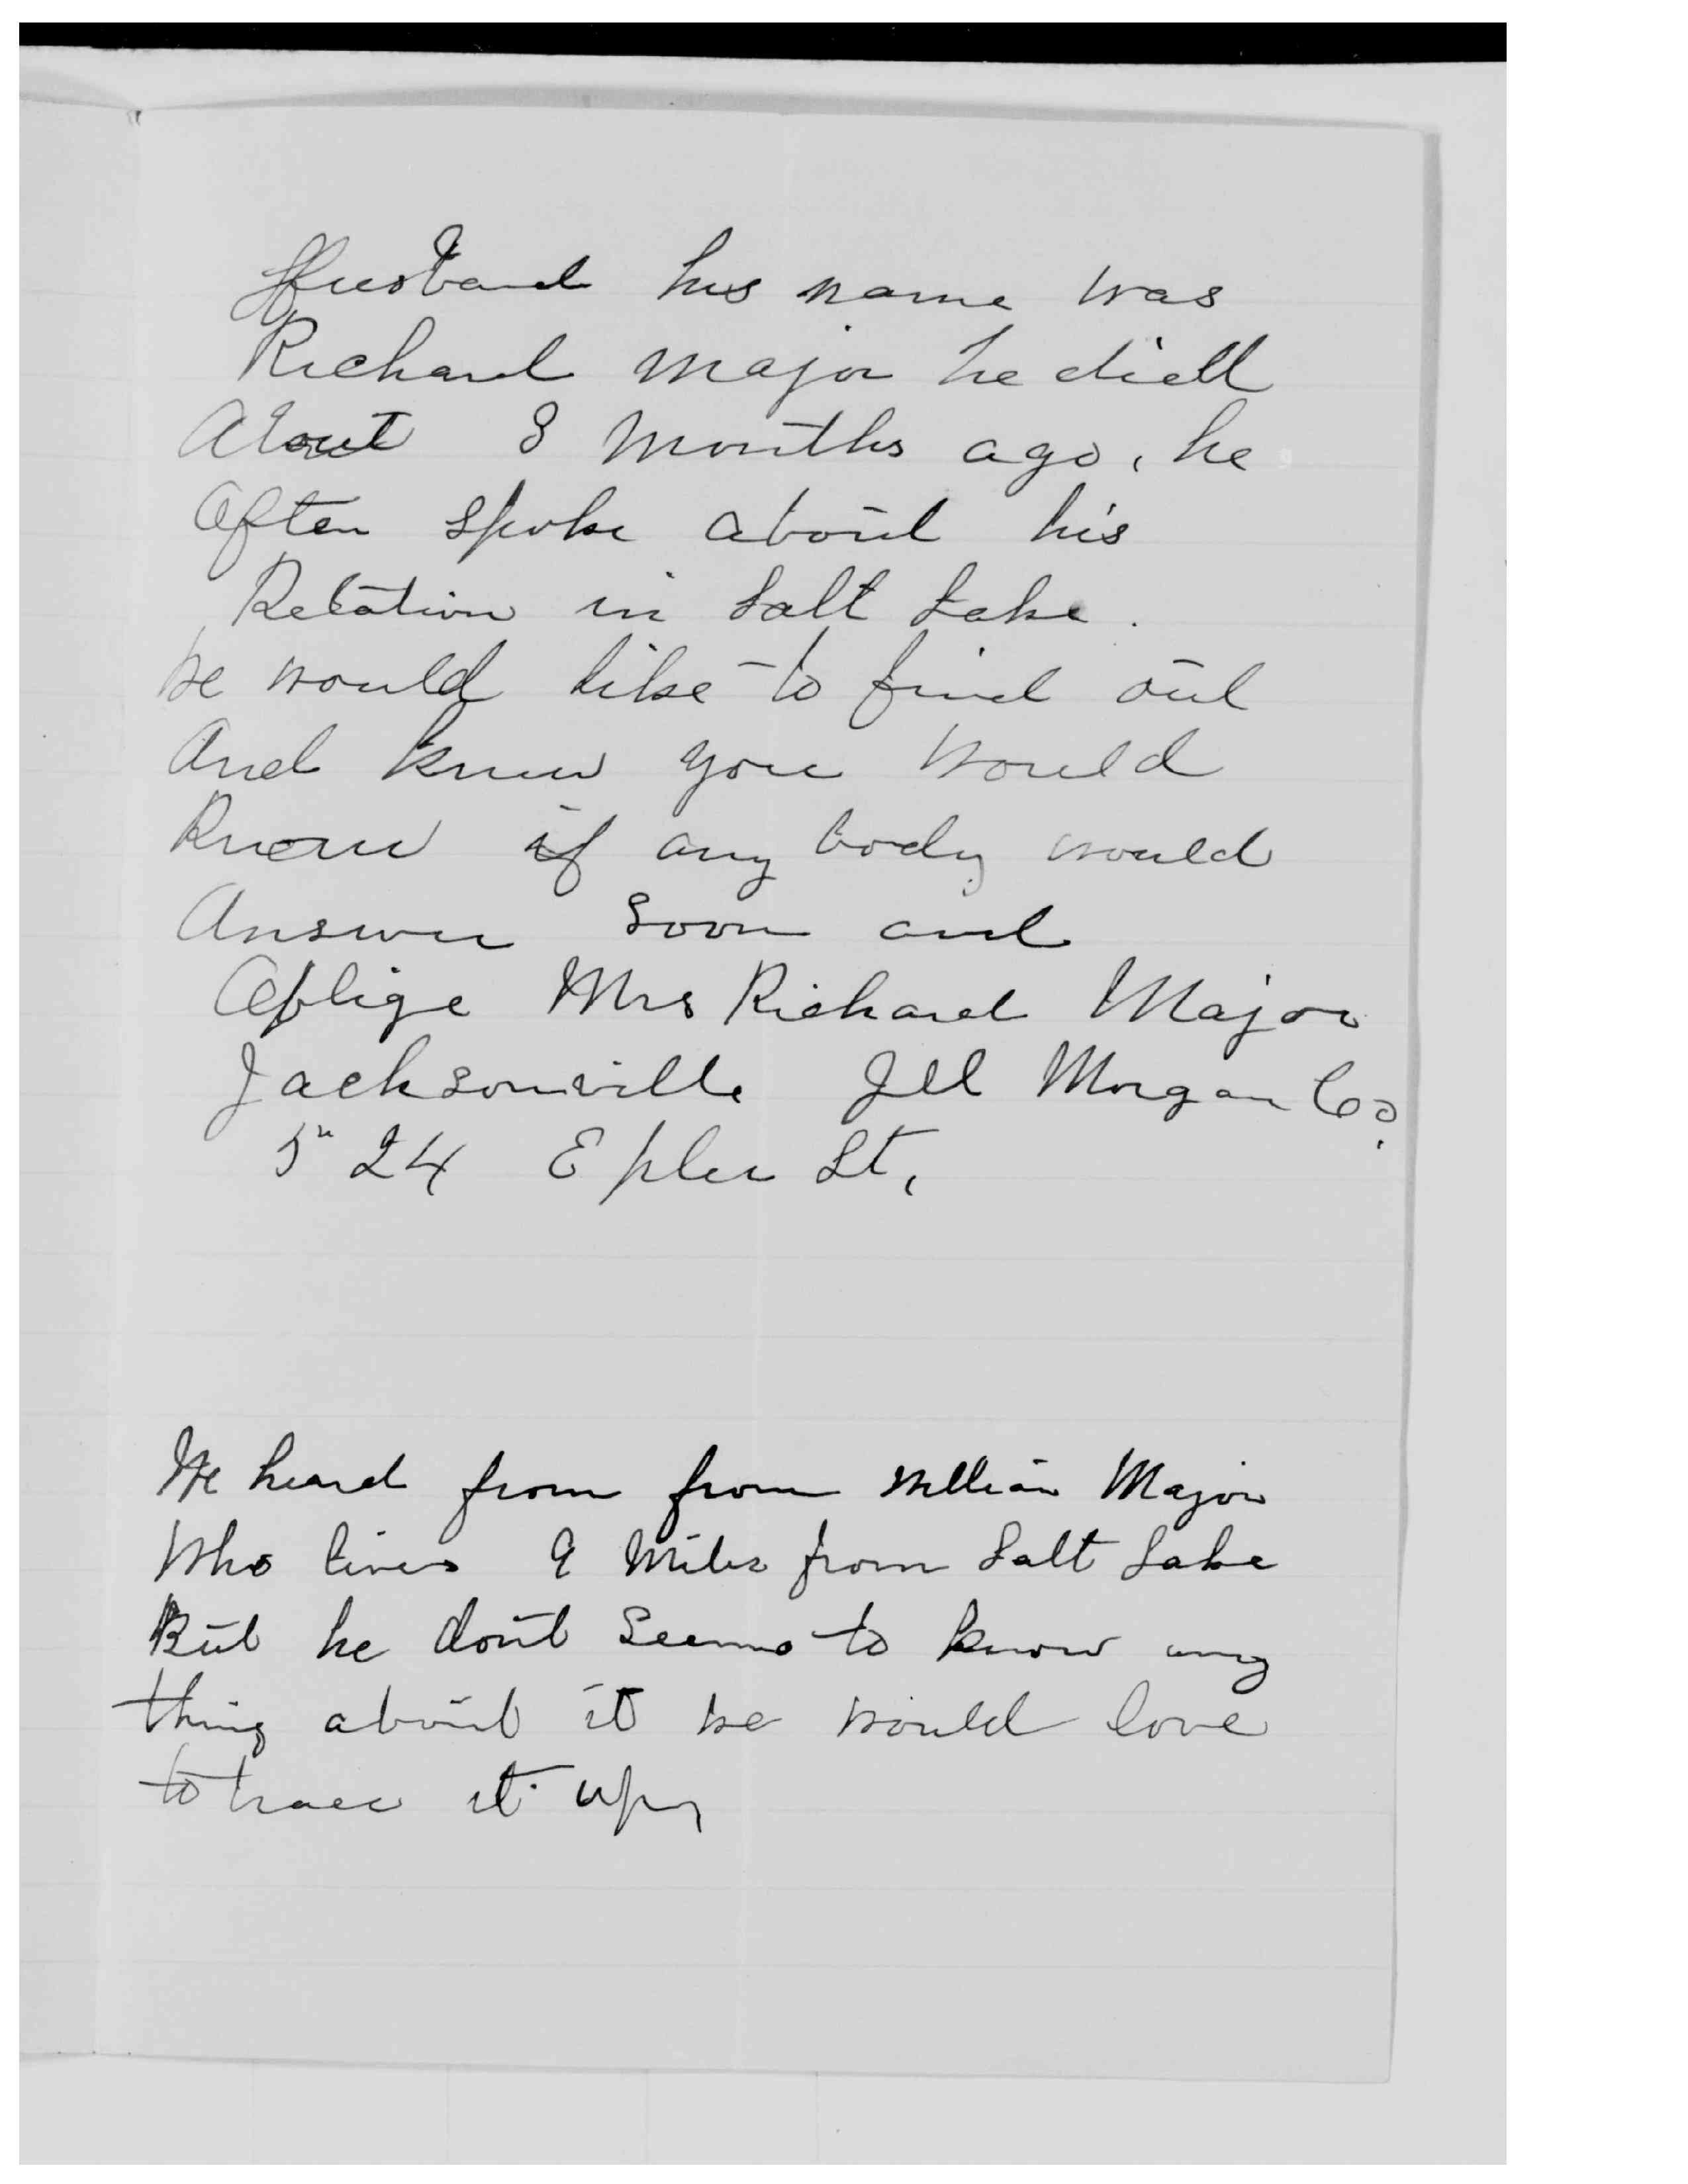 Husband his name was
Richard Major he died
About 8 Months ago, he
Often spoke about his
Relation in Salt Lake.
we would like to find out
And knew you would
Know if any body would
Answer Soon and
Oblige Mrs Richard Major
Jacksonville Ill Morgan Co.
524 Epler St,
We heard from from William Major
Who lives 9 Miles from Salt Lake
But he dont Seems to know any
thing about it we would love
to trace it up,